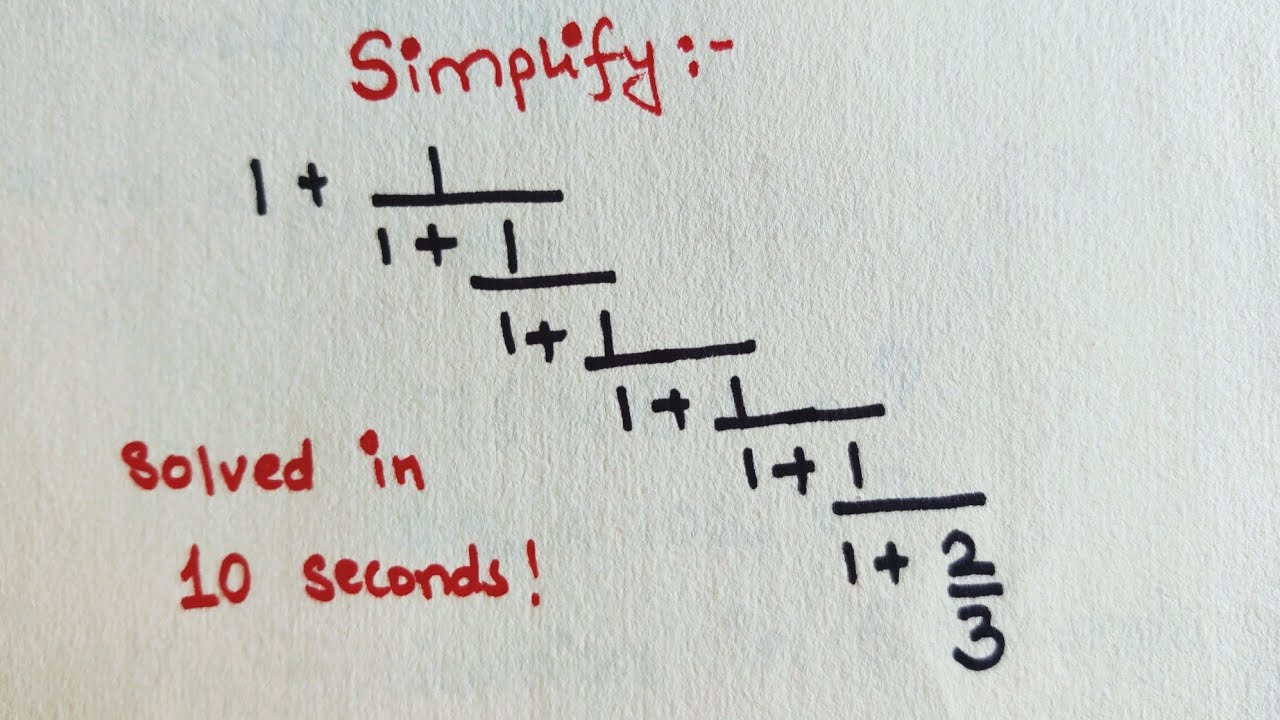 Simplify:-
1 + 1
1 + 1
1 + 1
1 + 1
1 + 1
1 + 2
3
Solved in
10 seconds!